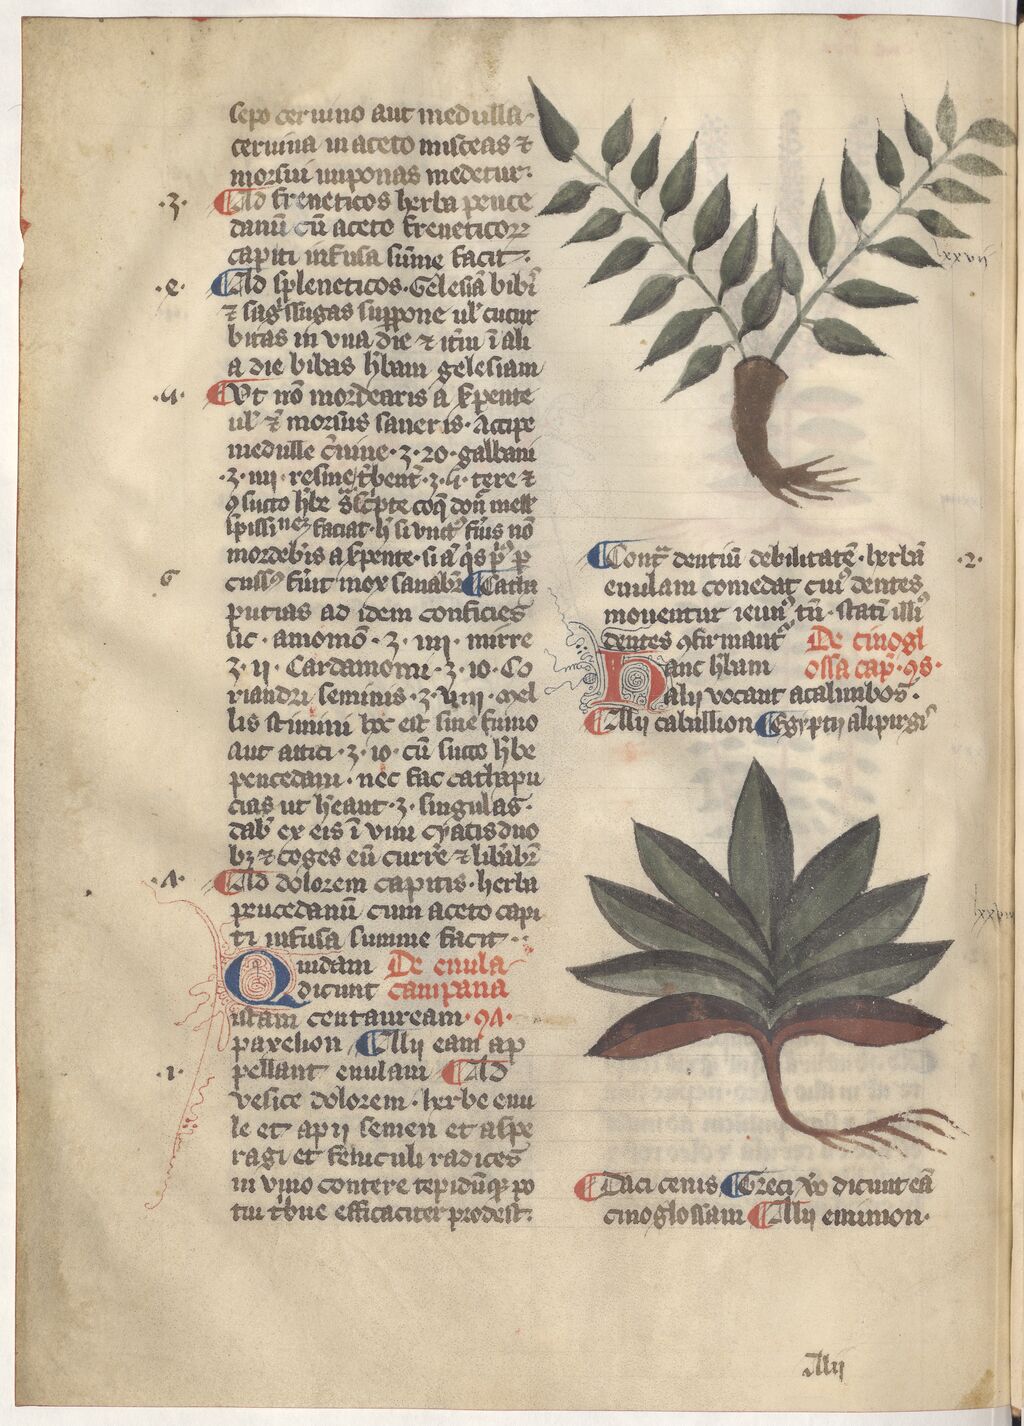 sepo ceruino aut medulla
ceruina in aceto misceas ⁊
morsui imponas medetur.
.3. Ad freneticos herba peuce
danū cū aceto freneticoꝝ
capiti infusa sūme facit.
.e. Ad spleneticos. Gēlesiā bibi
⁊ sagssugas suppone ul' cucur
bitas in vna die ⁊ itū ī ali
a die bibas hbam gelesiam
.4. Vt nō mordearis a serpente
ul' morsus saneris. Accipe
medulle c̄uine. ʒ. 20. galbani
.ʒ. iiij. resine t̄bent. ʒ. 4. tere ⁊
ꝯ succo hbe coq̄ donꝫ mell'
spissi faciat. h̄ si vnctꝰ fūis nō
mordebis a serpente. si
6 cussꝰ fūit mox sanabr̄ Catha
putias ad idem conficies
sic. amomō. ʒ. iiij. mirre
ʒ. ij. Cardamomi. ʒ. io. Co
riandri seminis. ʒ. viiij. mel
lis stimini hoc est sine fumo
aut attici. ʒ. io. cū succo hbe
peucedani. nec fac cathapu
cias ut hēant. ʒ. singulas.
dabꝰ ex eis ī vini cyatis duo
bꝫ ⁊ coges eū currē ⁊ libabr̄
.A. Ad dolorem capitis. herba
peucedanū cum aceto capi
ti infusa summe facit..
Quidam De enula
dicunt campana
istam centauream. 9A.
paxelion Alij eam ap
.1. pellant enulam Ad
vesice dolorem. herbe enu
le et apij semen et aspe
ragi et feniculi radices
in vino contere tepidūqꝫ po
tui t̄bue efficaciter prodest.
Contr̄ dentiū debilitatē. herbā .2.
enulam comedat cuiꝰ dentes
mouentur ieiunꝰ tn̄. statī illiꝰ
dentes ꝯfirmant̄ De cinogl
Hanc hbam ossa cap̄. 9s.
alij vocant acalimbos.
Alij cabillion Egyptij alipirgi
Daci cenis Greci v̄o dicunt eā
cinoglossam Alij eminion.
Alij